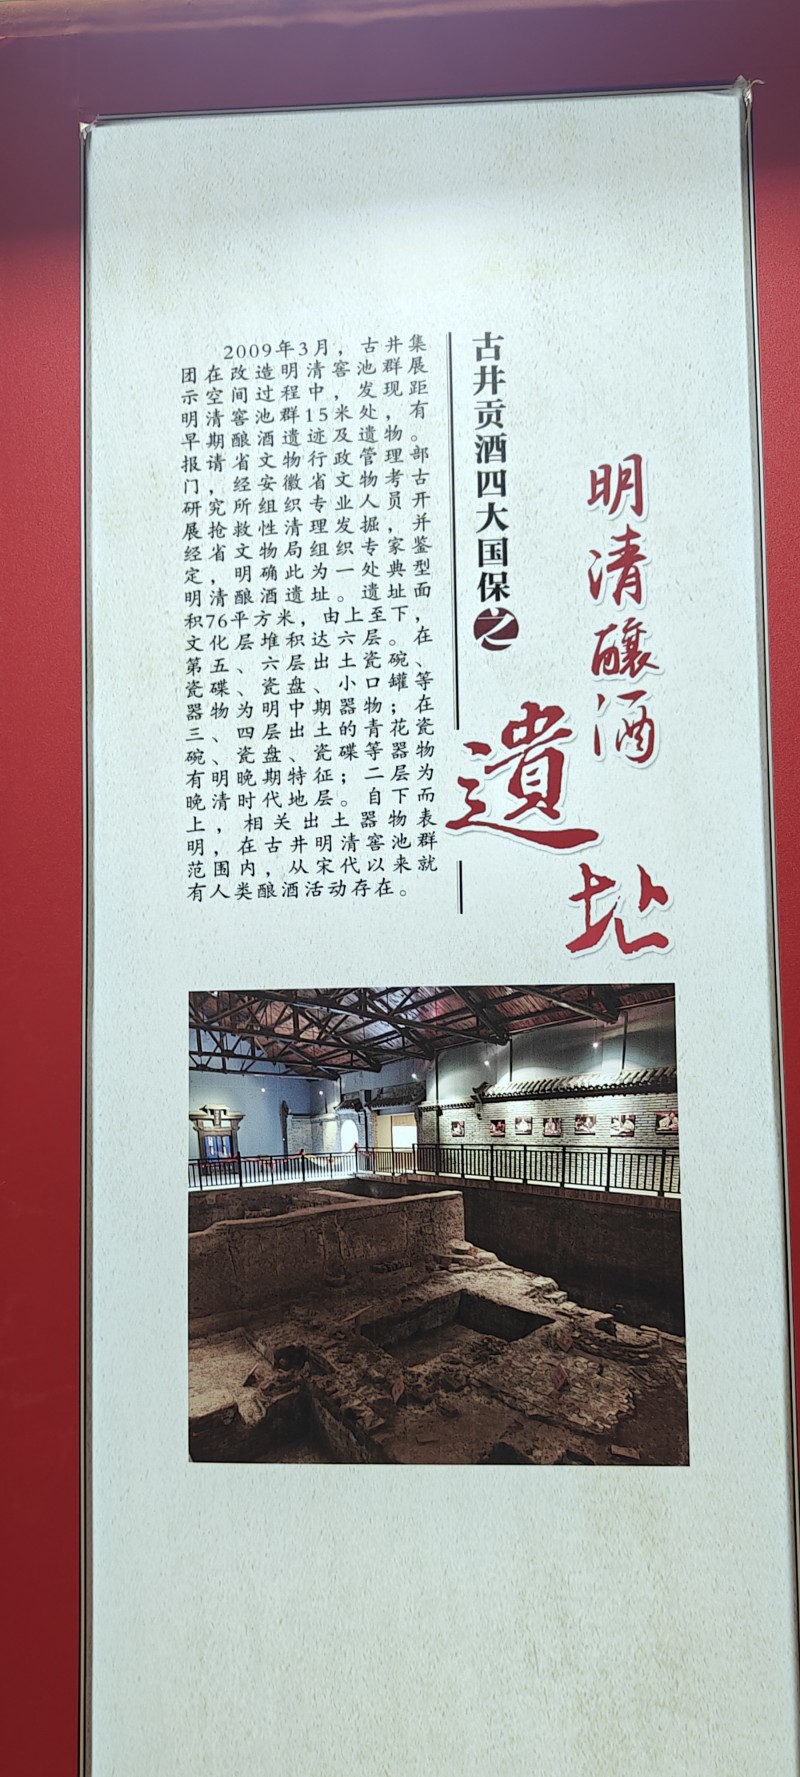 明清釀酒
遺址
古井贡酒四大国保之
2009年3月，古井集
团在改造明清窖池群展
示空间过程中，发现距
明清窖池群15米处，有
早期酿酒遗迹及遗物。
报请省文物行政管理部
门，经安徽省文物考古
研究所组织专业人员开
展抢救性清理发掘，并
经省文物局组织专家鉴
定，明确此为一处典型
明清酿酒遗址。遗址面
积76平方米，由上至下，
文化层堆积达六层。在
第五、六层出土瓷碗、
瓷碟、瓷盘、小口罐等
器物为明中期器物；在
三、四层出土的青花瓷
碗、瓷盘、瓷碟等器物
有明晚期特征；二层为
晚清时代地层。自下而
上，相关出土器物表
明，在古井明清窖池群
范围内，从宋代以来就
有人类酿酒活动存在。